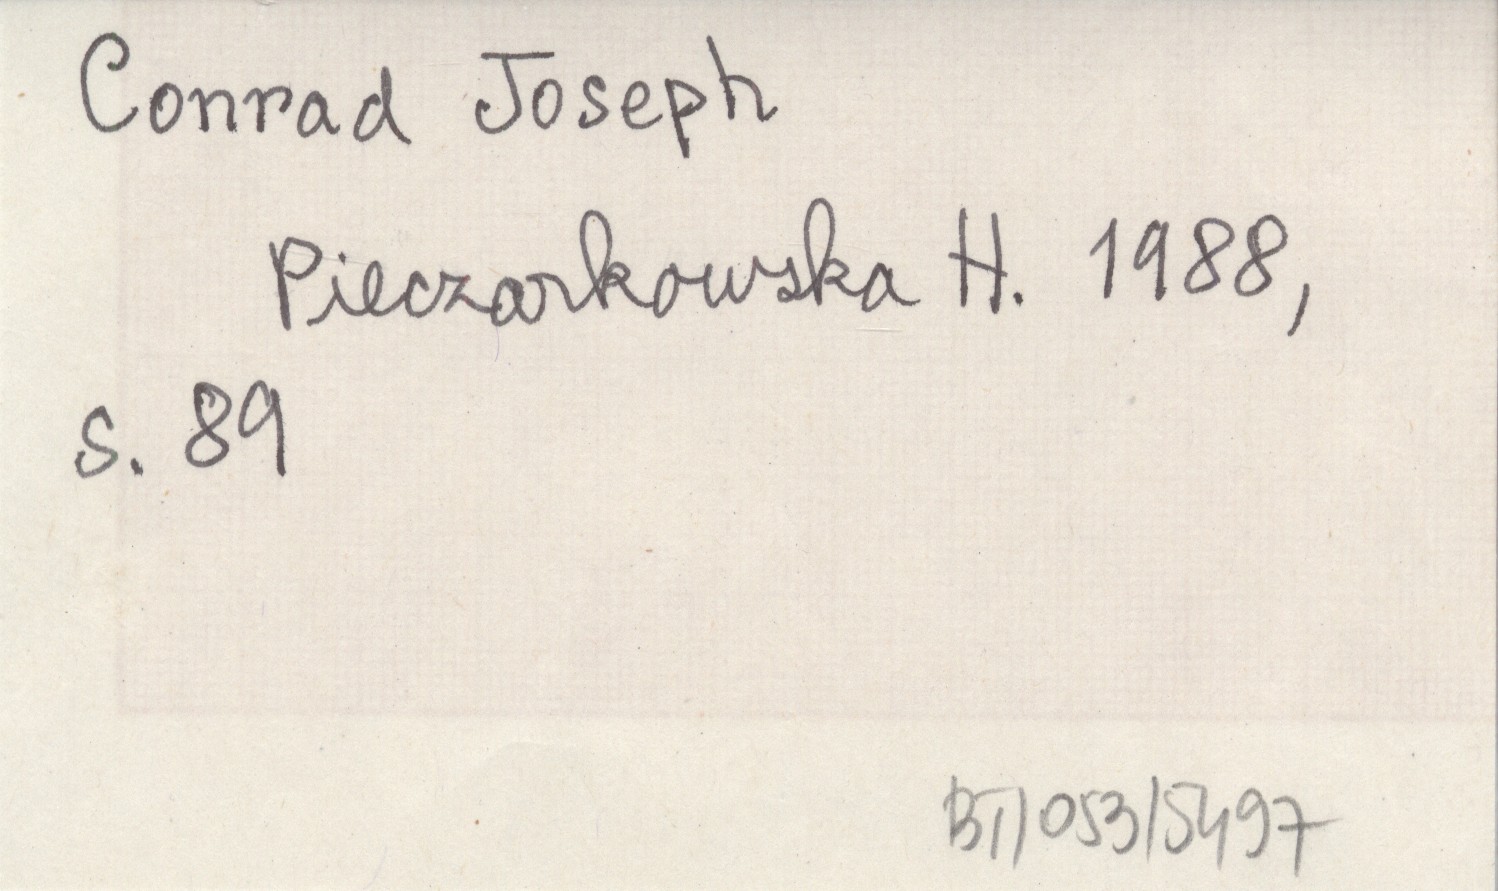 Conrad Joseph
Pieczarkowska H. 1988,
s. 89
BT/053/5497